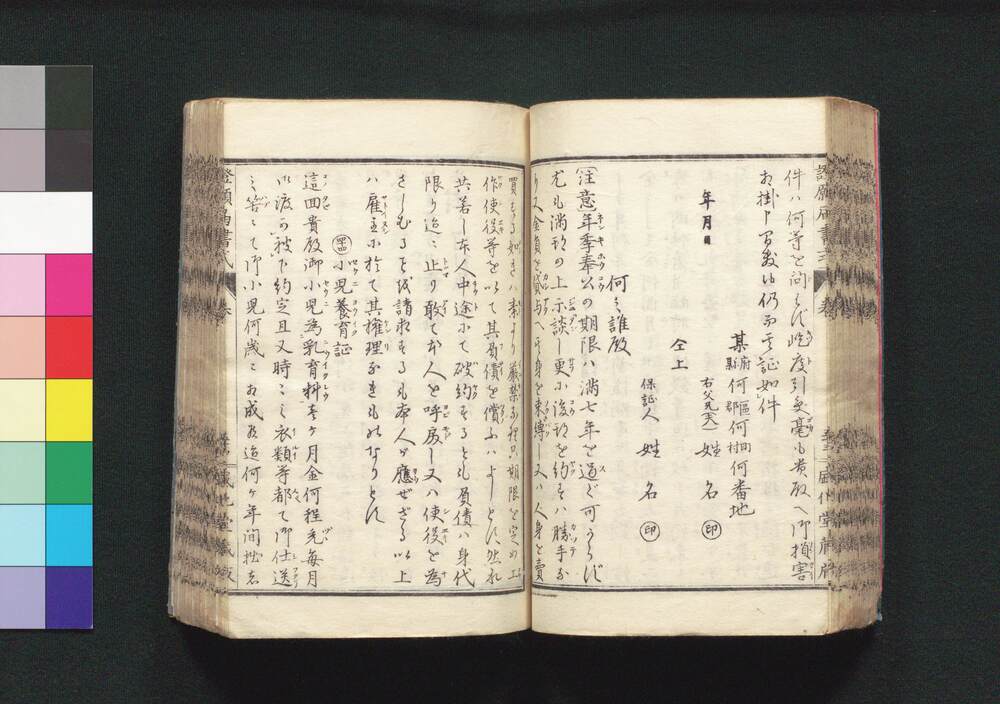 件ハ何等と問ハず屹度引受毫も貴殿へ御損害
相掛申間敷候仍而之証如件
年月日
某府縣何區郡何町村何番地
右父兄夫 姓名 印
仝上
保証人 姓名 印
何之誰殿
注意年季奉公の期限ハ満七年を過ぐ可からず
尤も満期の上示談し更に後期を約するハ勝手な
り又金員を貸与へ其身を束縛し又ハ人身を賣
買する如きハ素より厳禁なり只期限を定め工
作使役等を以て其負債を償ふハよしとす然れ
共若し本人中途にて破約するとも負債ハ身代
限り迄に止り敢て本人を呼戻し又ハ使役を為
さしむるを請求するも本人が應ぜざる以上
ハ雇主に於て其権理なきものなりとす
四四 小児養育証
這回貴殿御小児為乳育料壱ヶ月金何程宛毎月
御渡可被下約定且又時々之衣類等都て御仕送
之筈にて御小児何歳ニ相成候迄何ヶ年間